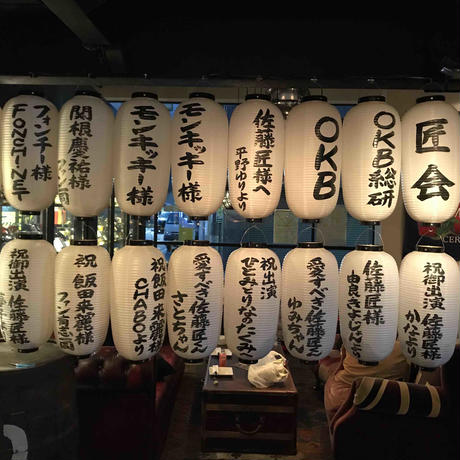 フォンチー様
FONCHI-NET
関根慶祐様
ファン一同
モンキッキー様
モンキッキー様
佐藤匠様へ
平野ゆりより
OKB
OKB総研
匠会
祝御出演 佐藤匠様
祝 飯田来麗様
ファン有志一同
祝飯田来麗様
CHABOより
愛すべき佐藤匠さんへ
さとちゃん
祝出演
ひとみりなたくみ
愛すべき佐藤匠さんへ
ゆみちゃん
佐藤匠様
祝御出演 佐藤匠様
かなより